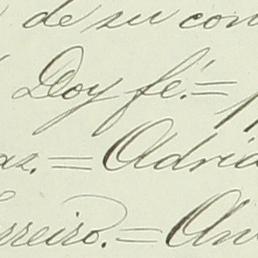 de su con
Doy fé.=
az.= Adria
rreiro.= An